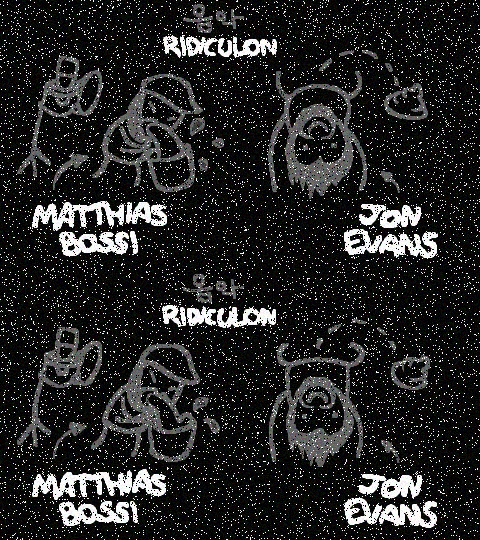 음악
RIDICULON
MATTHIAS
BOSSI
JON
EVANS
음악
RIDICULON
MATTHIAS
BOSSI
JON
EVANS